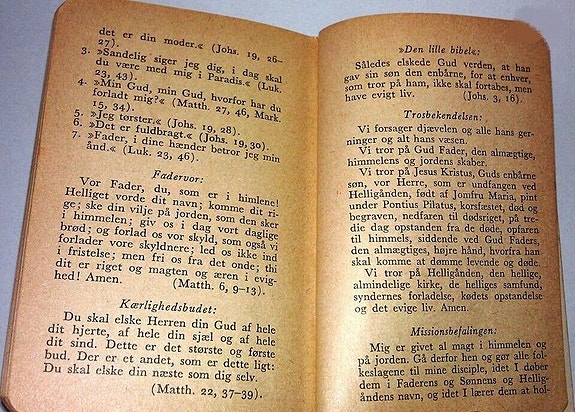 det er din moder.« (Johs. 19, 26–
27).
3. »Sandelig siger jeg dig, i dag skal
du være med mig i Paradis.« (Luk.
23, 43).
4. »Min Gud, min Gud, hvorfor har du
forladt mig?« (Matth. 27, 46, Mark.
15, 34).
5. »Jeg tørster.« (Johs. 19, 28).
6. »Det er fuldbragt.« (Johs. 19, 30).
7. »Fader, i dine hænder betror jeg min
ånd.« (Luk. 23, 46).
Fadervor:
Vor Fader, du, som er i himlene!
Helliget vorde dit navn; komme dit ri-
ge; ske din vilje på jorden, som den sker
i himmelen; giv os i dag vort daglige
brød; og forlad os vor skyld, som også vi
forlader vore skyldnere; led os ikke ind
i fristelse; men fri os fra det onde; thi
dit er riget og magten og æren i evig-
hed! Amen. (Matth. 6, 9–13).
Kærlighedsbudet:
Du skal elske Herren din Gud af hele
dit hjerte, af hele din sjæl og af hele
dit sind. Dette er det største og første
bud. Der er et andet, som er dette ligt:
Du skal elske din næste som dig selv.
(Matth. 22, 37–39).
»Den lille bibel«:
Således elskede Gud verden, at han
gav sin søn den enbårne, for at enhver,
som tror på ham, ikke skal fortabes, men
have evigt liv. (Johs. 3, 16).
Trosbekendelsen:
Vi forsager djævelen og alle hans ger-
ninger og alt hans væsen.
Vi tror på Gud Fader, den almægtige,
himmelens og jordens skaber.
Vi tror på Jesus Kristus, Guds enbårne
søn, vor Herre, som er undfangen ved
Helligånden, født af Jomfru Maria, pint
under Pontius Pilatus, korsfæstet, død og
begraven, nedfaren til dødsriget, på tre-
die dag opstanden fra de døde, opfaren
til himmels, siddende ved Gud Faders,
den almægtiges, højre hånd, hvorfra han
skal komme at dømme levende og døde.
Vi tror på Helligånden, den hellige,
almindelige kirke, de helliges samfund,
syndernes forladelse, kødets opstandelse
og det evige liv. Amen.
Missionsbefalingen:
Mig er givet al magt i himmelen og
på jorden. Gå derfor hen og gør alle fol-
keslagene til mine disciple, idet I døber
dem i Faderens og Sønnens og Hellig-
åndens navn, og idet I lærer dem at hol-